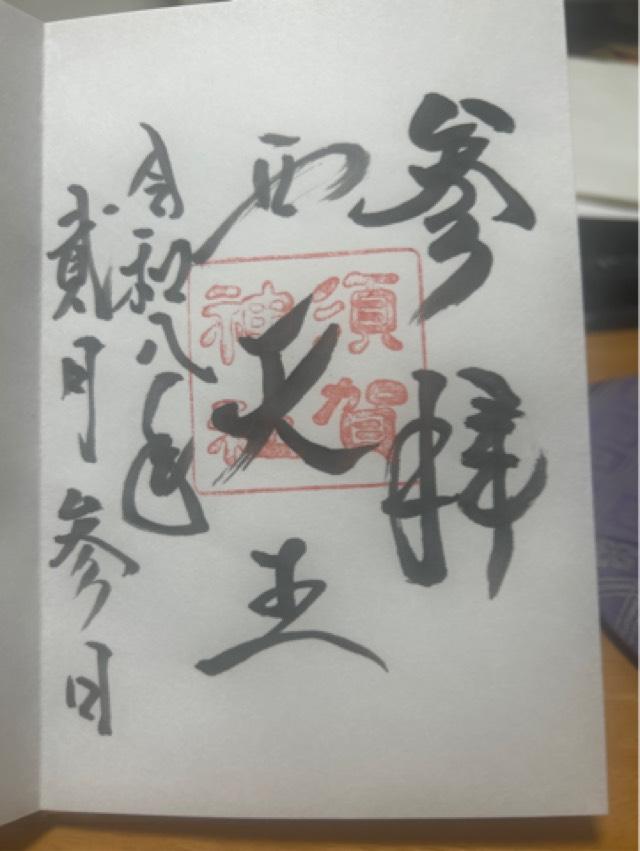 参拝
西天王
須賀
神社
令和八年
貳月参日